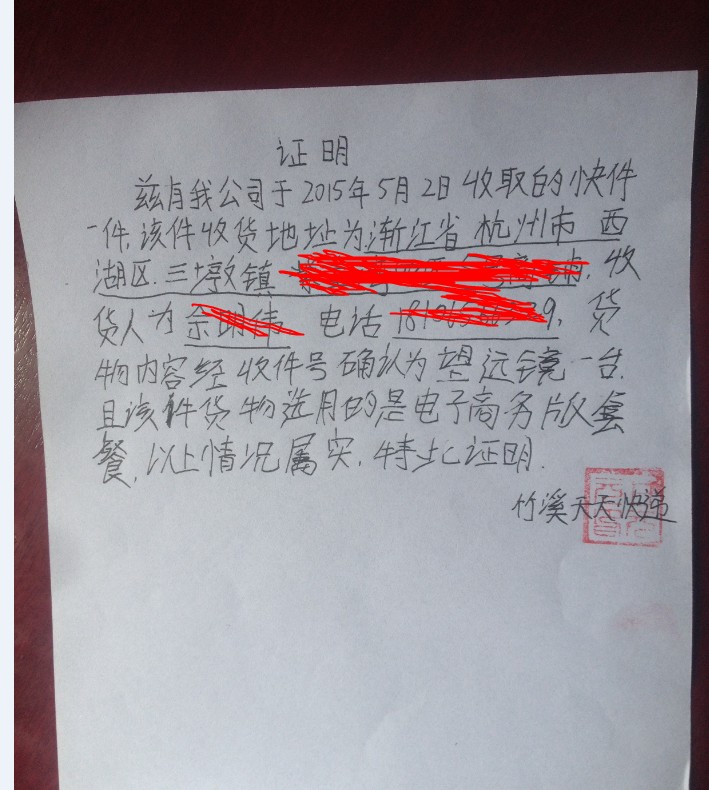 证明
兹有我公司于2015年5月2日收取的快件
一件,该件收货地址为浙江省杭州市西
湖区.三墩镇 收
货人为 电话 货
物内容经收件号确认为望远镜一台.
且该件货物选用的是电子商务版套
餐,以上情况属实,特此证明.
竹溪天天快递